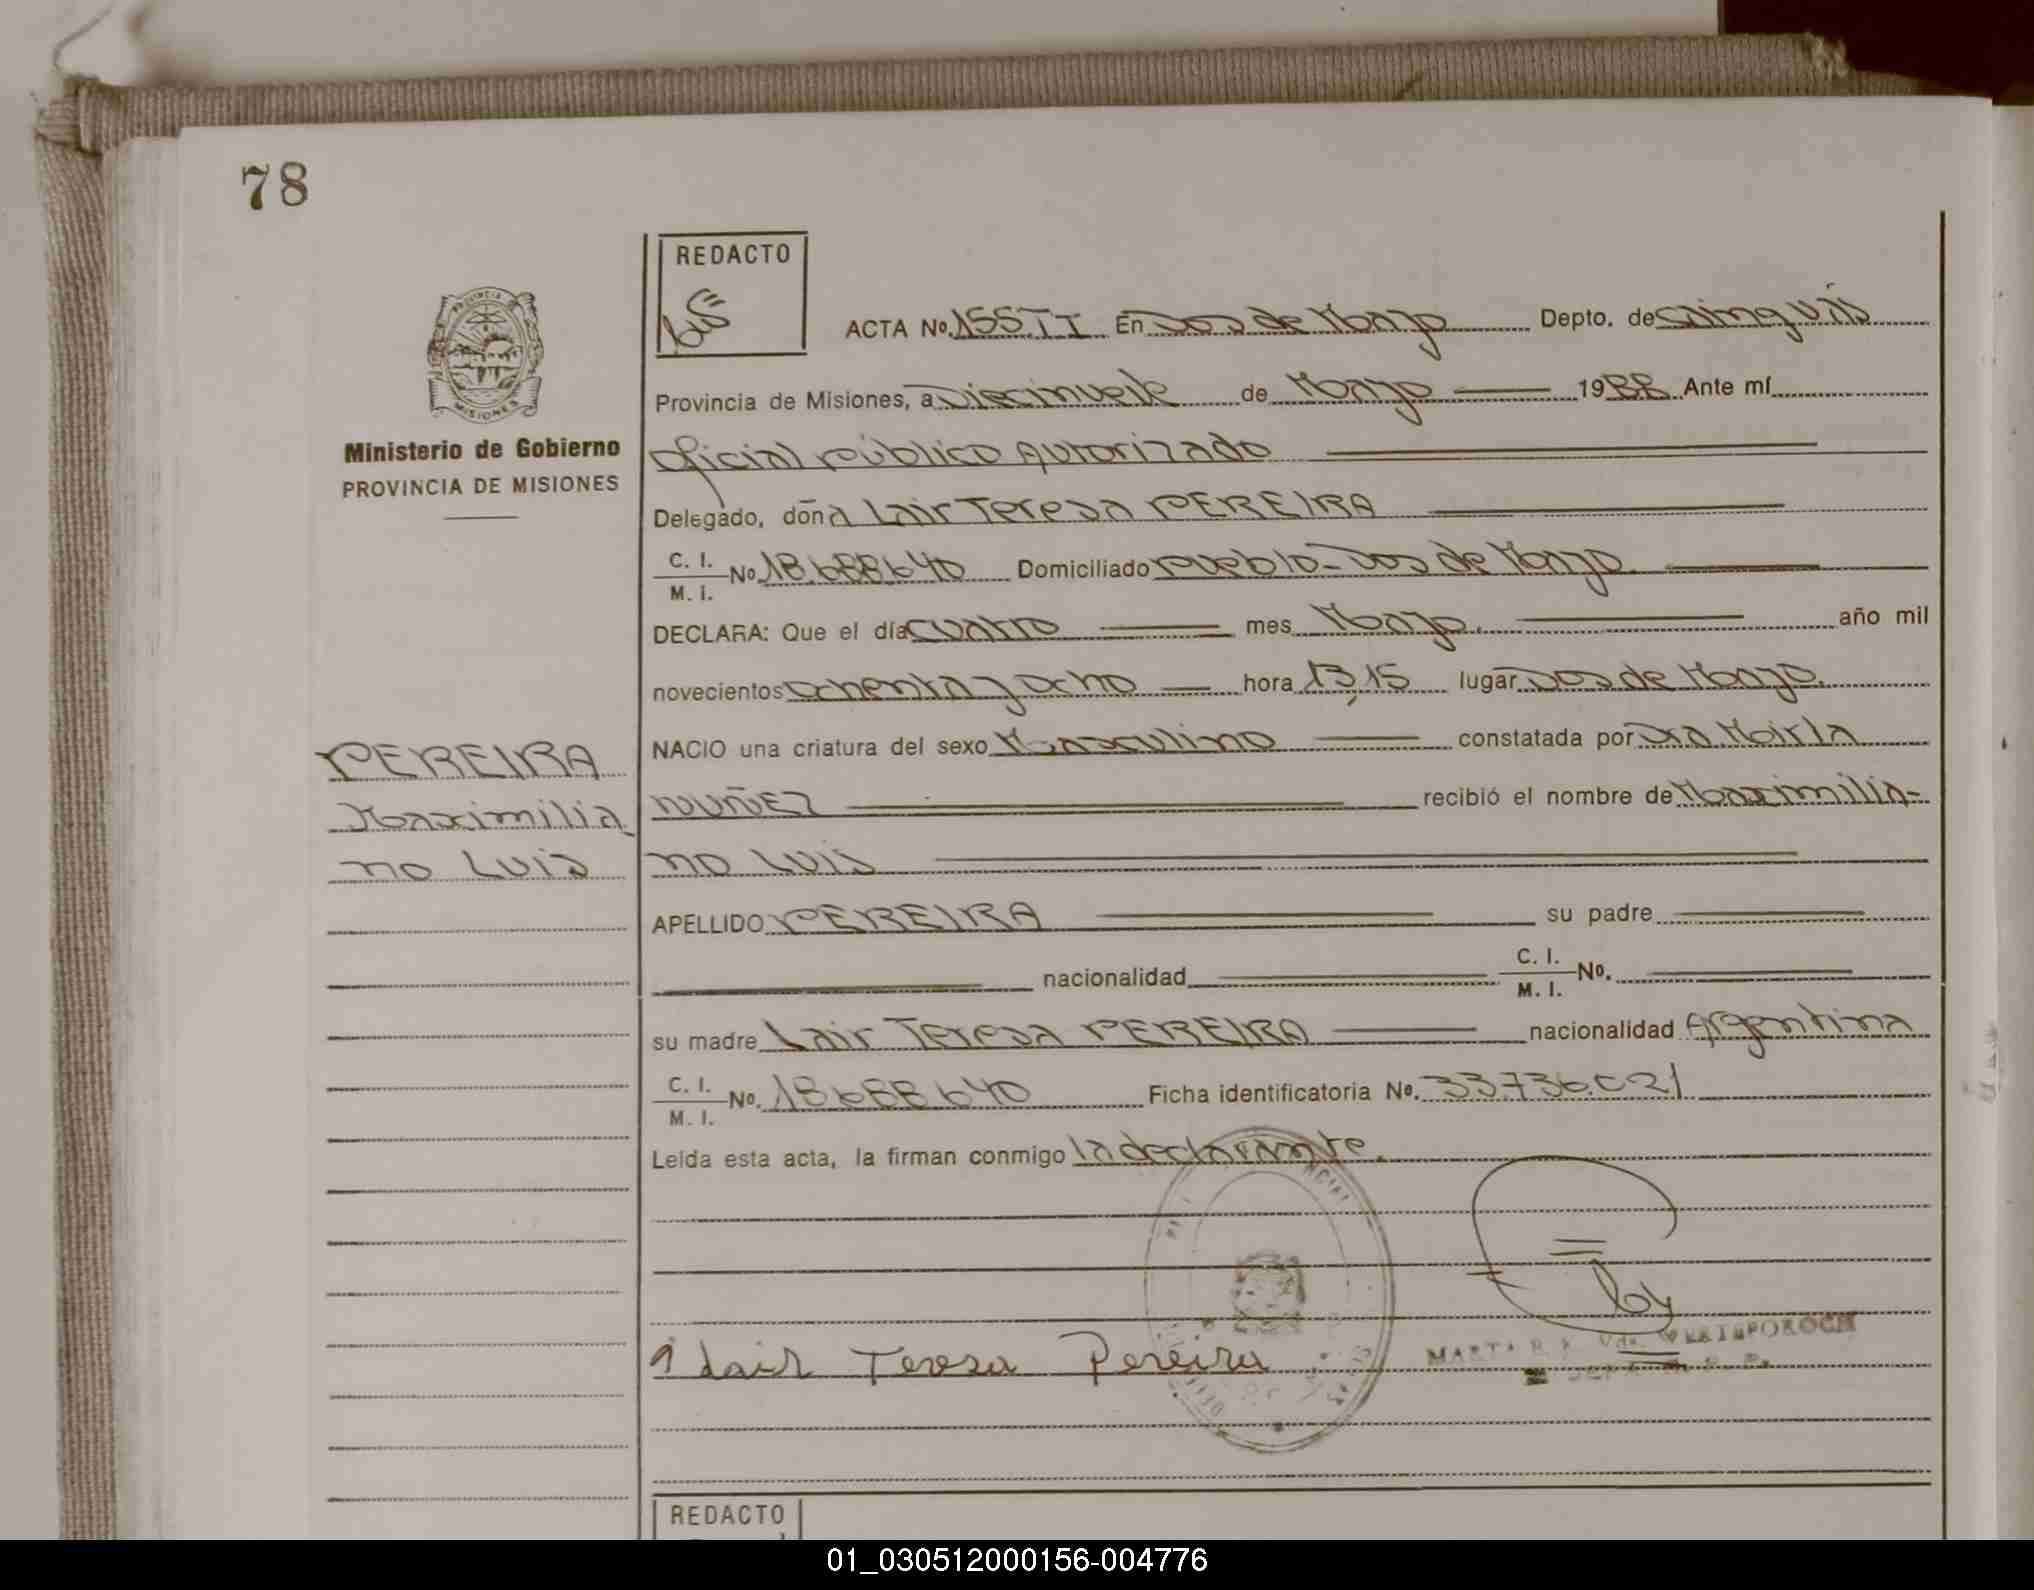 78
REDACTO
ACTA No. 155 TI En Dos de Mayo Depto. de Cainguás
Provincia de Misiones, a Diecinueve de Mayo 1988 Ante mí
Oficial público Autorizado
Ministerio de Gobierno
PROVINCIA DE MISIONES
Delegado, doña Lair Teresa PEREIRA
C. I.
M. I. No. 18688640 Domiciliado pueblo-Dos de Mayo.
DECLARA: Que el día cuatro mes Mayo. año mil
novecientos ochenta y ocho hora 13,15 lugar Dos de Mayo.
NACIO una criatura del sexo Masculino constatada por Dra Mirla
NUÑEZ recibió el nombre de Maximilia-
no Luis
PEREIRA
Maximilia
no Luis
APELLIDO PEREIRA su padre
nacionalidad C. I.
M. I. No.
su madre Lair Teresa PEREIRA nacionalidad Argentina
C. I.
M. I. No. 18688640 Ficha identificatoria No. 33.736.021
Leída esta acta, la firman conmigo la declarante.
Lair Teresa Pereira
MARTA R. K. Vda.
REDACTO
01_030512000156-004776